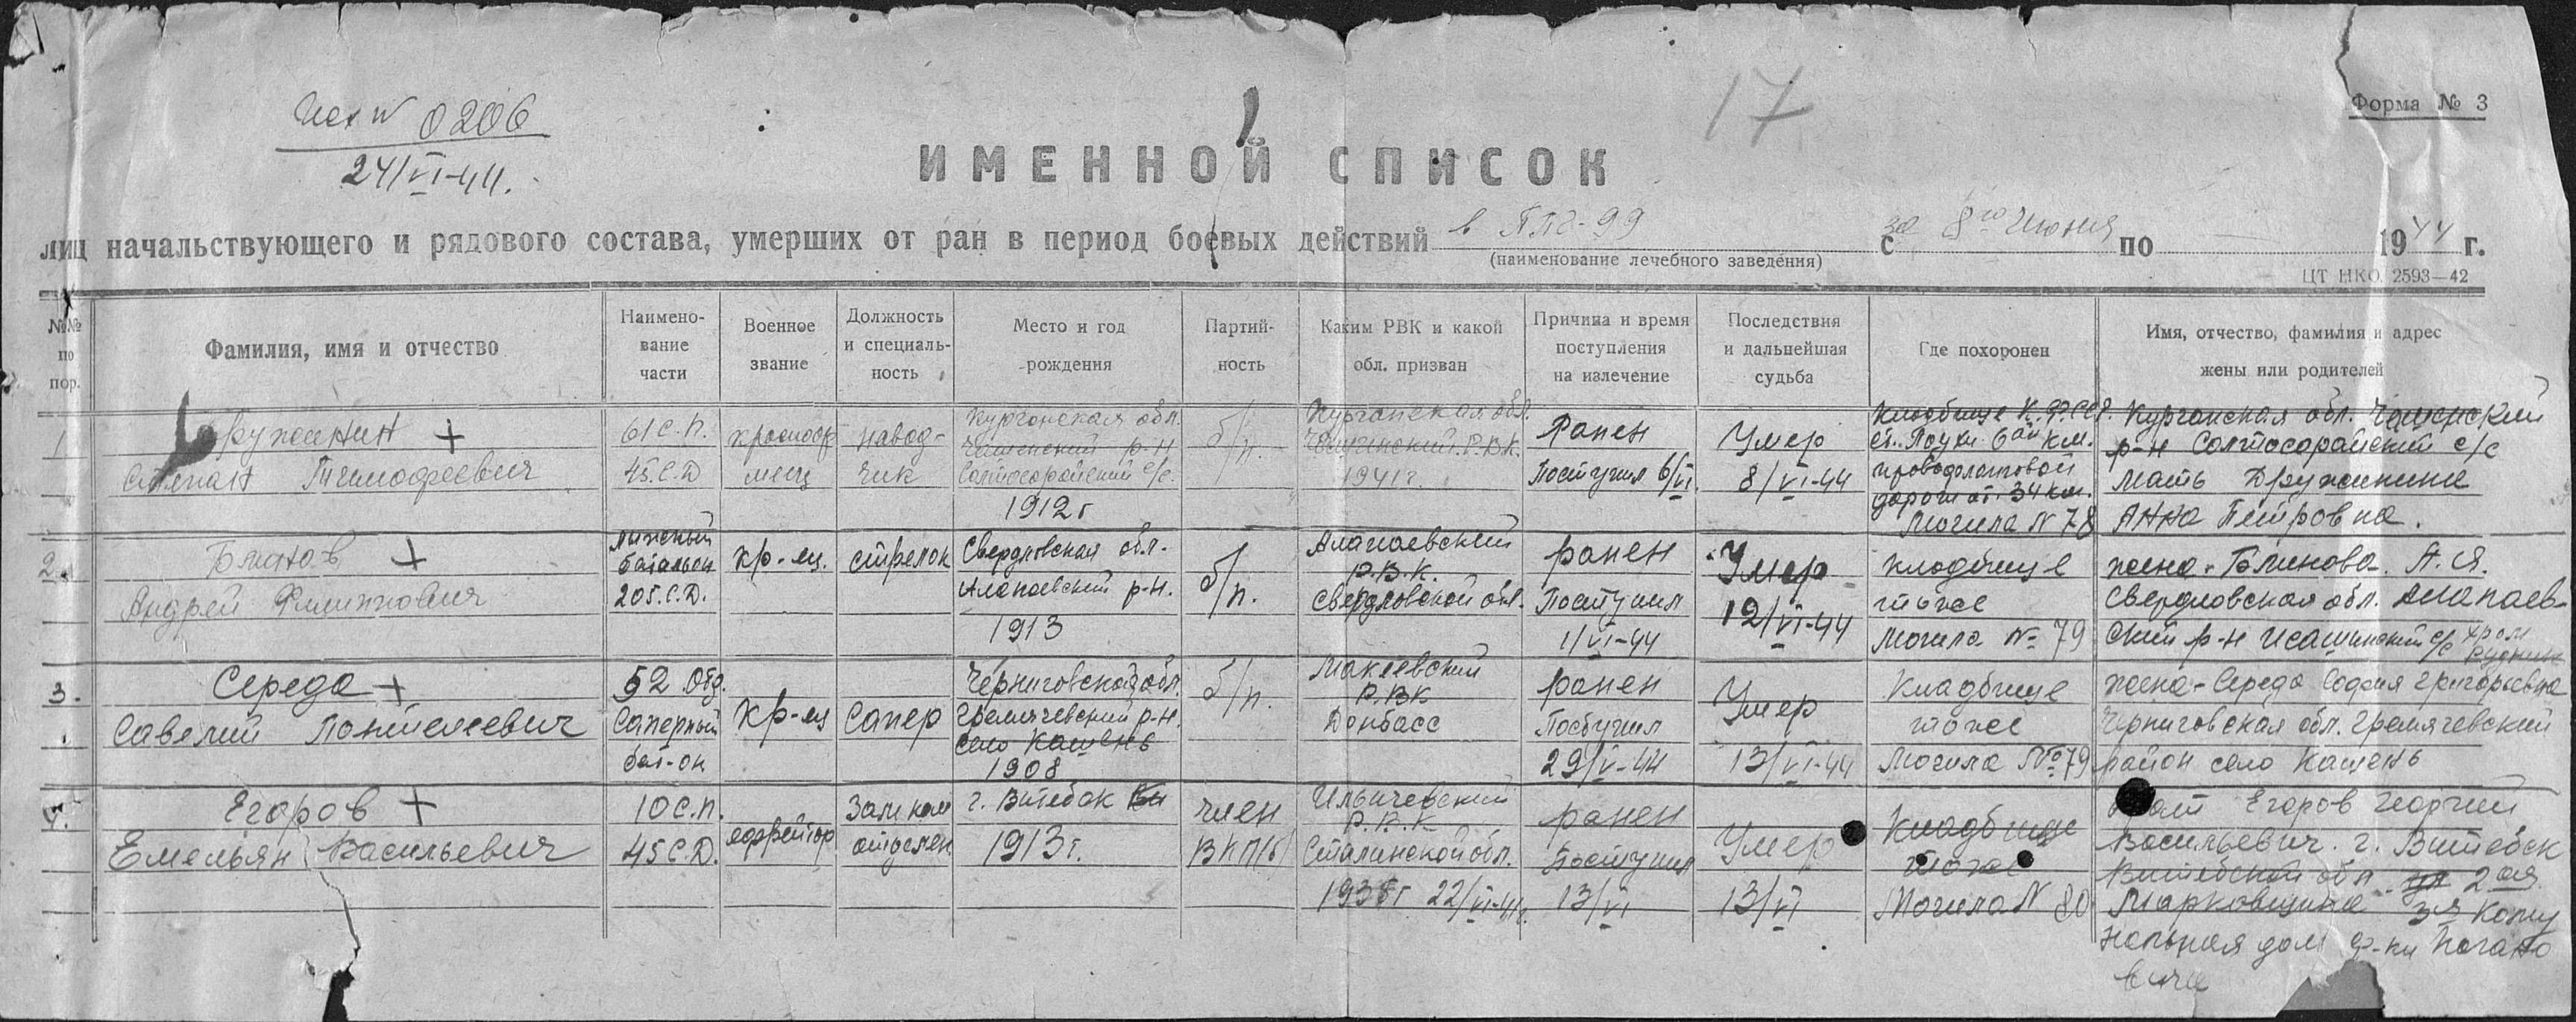 Исх N 0206
17
Форма № 3
24/VI-44.
ИМЕННОЙ СПИСОК
лиц начальствующего и рядового состава, умерших от ран в период боевых действий в ППГ-99 с за 8го Июня по — 1944 г.
(наименование лечебного заведения)
ЦТ НКО 2593—42
№№ по пор.
Фамилия, имя и отчество
Наимено-
вание
части
Военное
звание
Должность
и специаль-
ность
Место и год
рождения
Партий-
ность
Каким РВК и какой
обл. призван
Причина и время
поступления
на излечение
Последствия
и дальнейшая
судьба
Где похоронен
Имя, отчество, фамилия и адрес
жены или родителей
1
Дружинин +
Степан Тимофеевич
61 С.П.
45.С.Д
красноар
меец
навод-
чик
Курганская обл.
Чашинский р-н
Солтосарайский с/с.
1912 г
б/п.
Курганская обл.
Чашинский Р.В.К.
1941 г.
Ранен
Поступил 6/VI.
Умер
8/VI-44
Кладбище К.Ф.ССР.
ст. Лоухи 6ой км.
дороги от 34 км.
Могила N 78
Курганская обл. Чашенский
р-н Солтосарайский с/с
мать Дружинина
Анна Петровна.
2.
Блинов +
Андрей Филиппович
лыжный
батальон
205.С.Д.
кр-ец.
стрелок
Свердловская обл.
Алапаевский р-н.
1913
б/п.
Алапаевский
Р.В.К.
Свердловской обл.
ранен
Поступил
1/VI-44
Умер
12/VI-44
кладбище
тоже
Могила № 79
жена. Блинова. А.Я.
Свердловская обл. Алапаев-
ский р-н с/с
рудник
3.
Середа +
Савелий Пантелеевич
52 отд.
Саперный
бат-он
кр-ец
Сапер
Черниговской обл.
Гремячевский р-н.
село Камень
1908
б/п.
Макеевский
Р.ВК
Донбасс
ранен
Поступил
29/V-44
Умер
13/VI-44
Кладбище
тоже
Могила №79
жена-Середа София Григорьевна
Черниговская обл. Гремячевский
район село Камень
4.
Егоров +
Емельян Васильевич
10 С.П.
45 С.Д.
ефрейтор
Зам ком
отделен
г. Витебск
1913 г.
член
ВКП/б/
Ильичевский
Р.В.К
Сталинской обл.
1938 г 22/VI-41г.
ранен
Поступил
13/VI
Умер
13/VI
Кладбище
тоже
Могила N 80
брат Егоров Георгий
Васильевич. г. Витебск
Витебской обл. 2ая
Марковщина 3я Комму
нальная дом